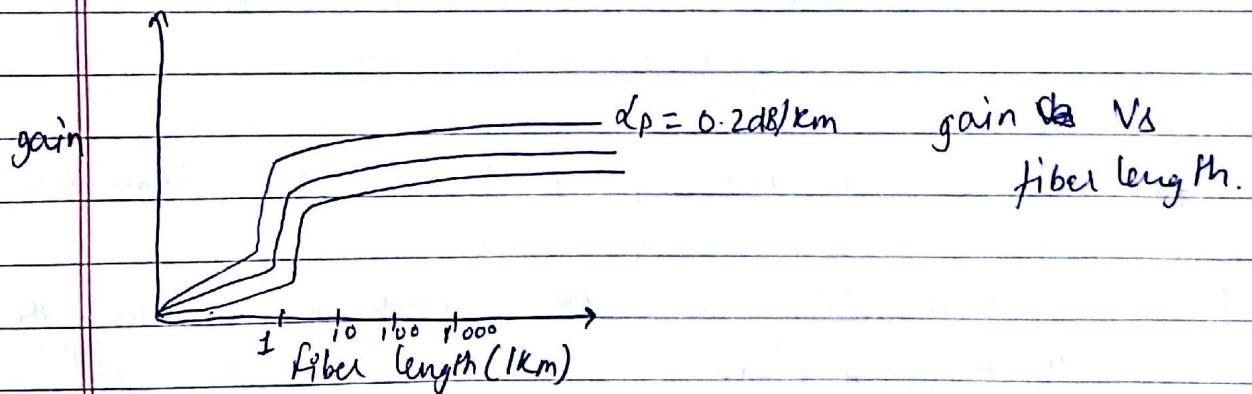 αp = 0.2dB/km
gain Vs
fiber length.
gain
1 10 100 1000
fiber length (1km)